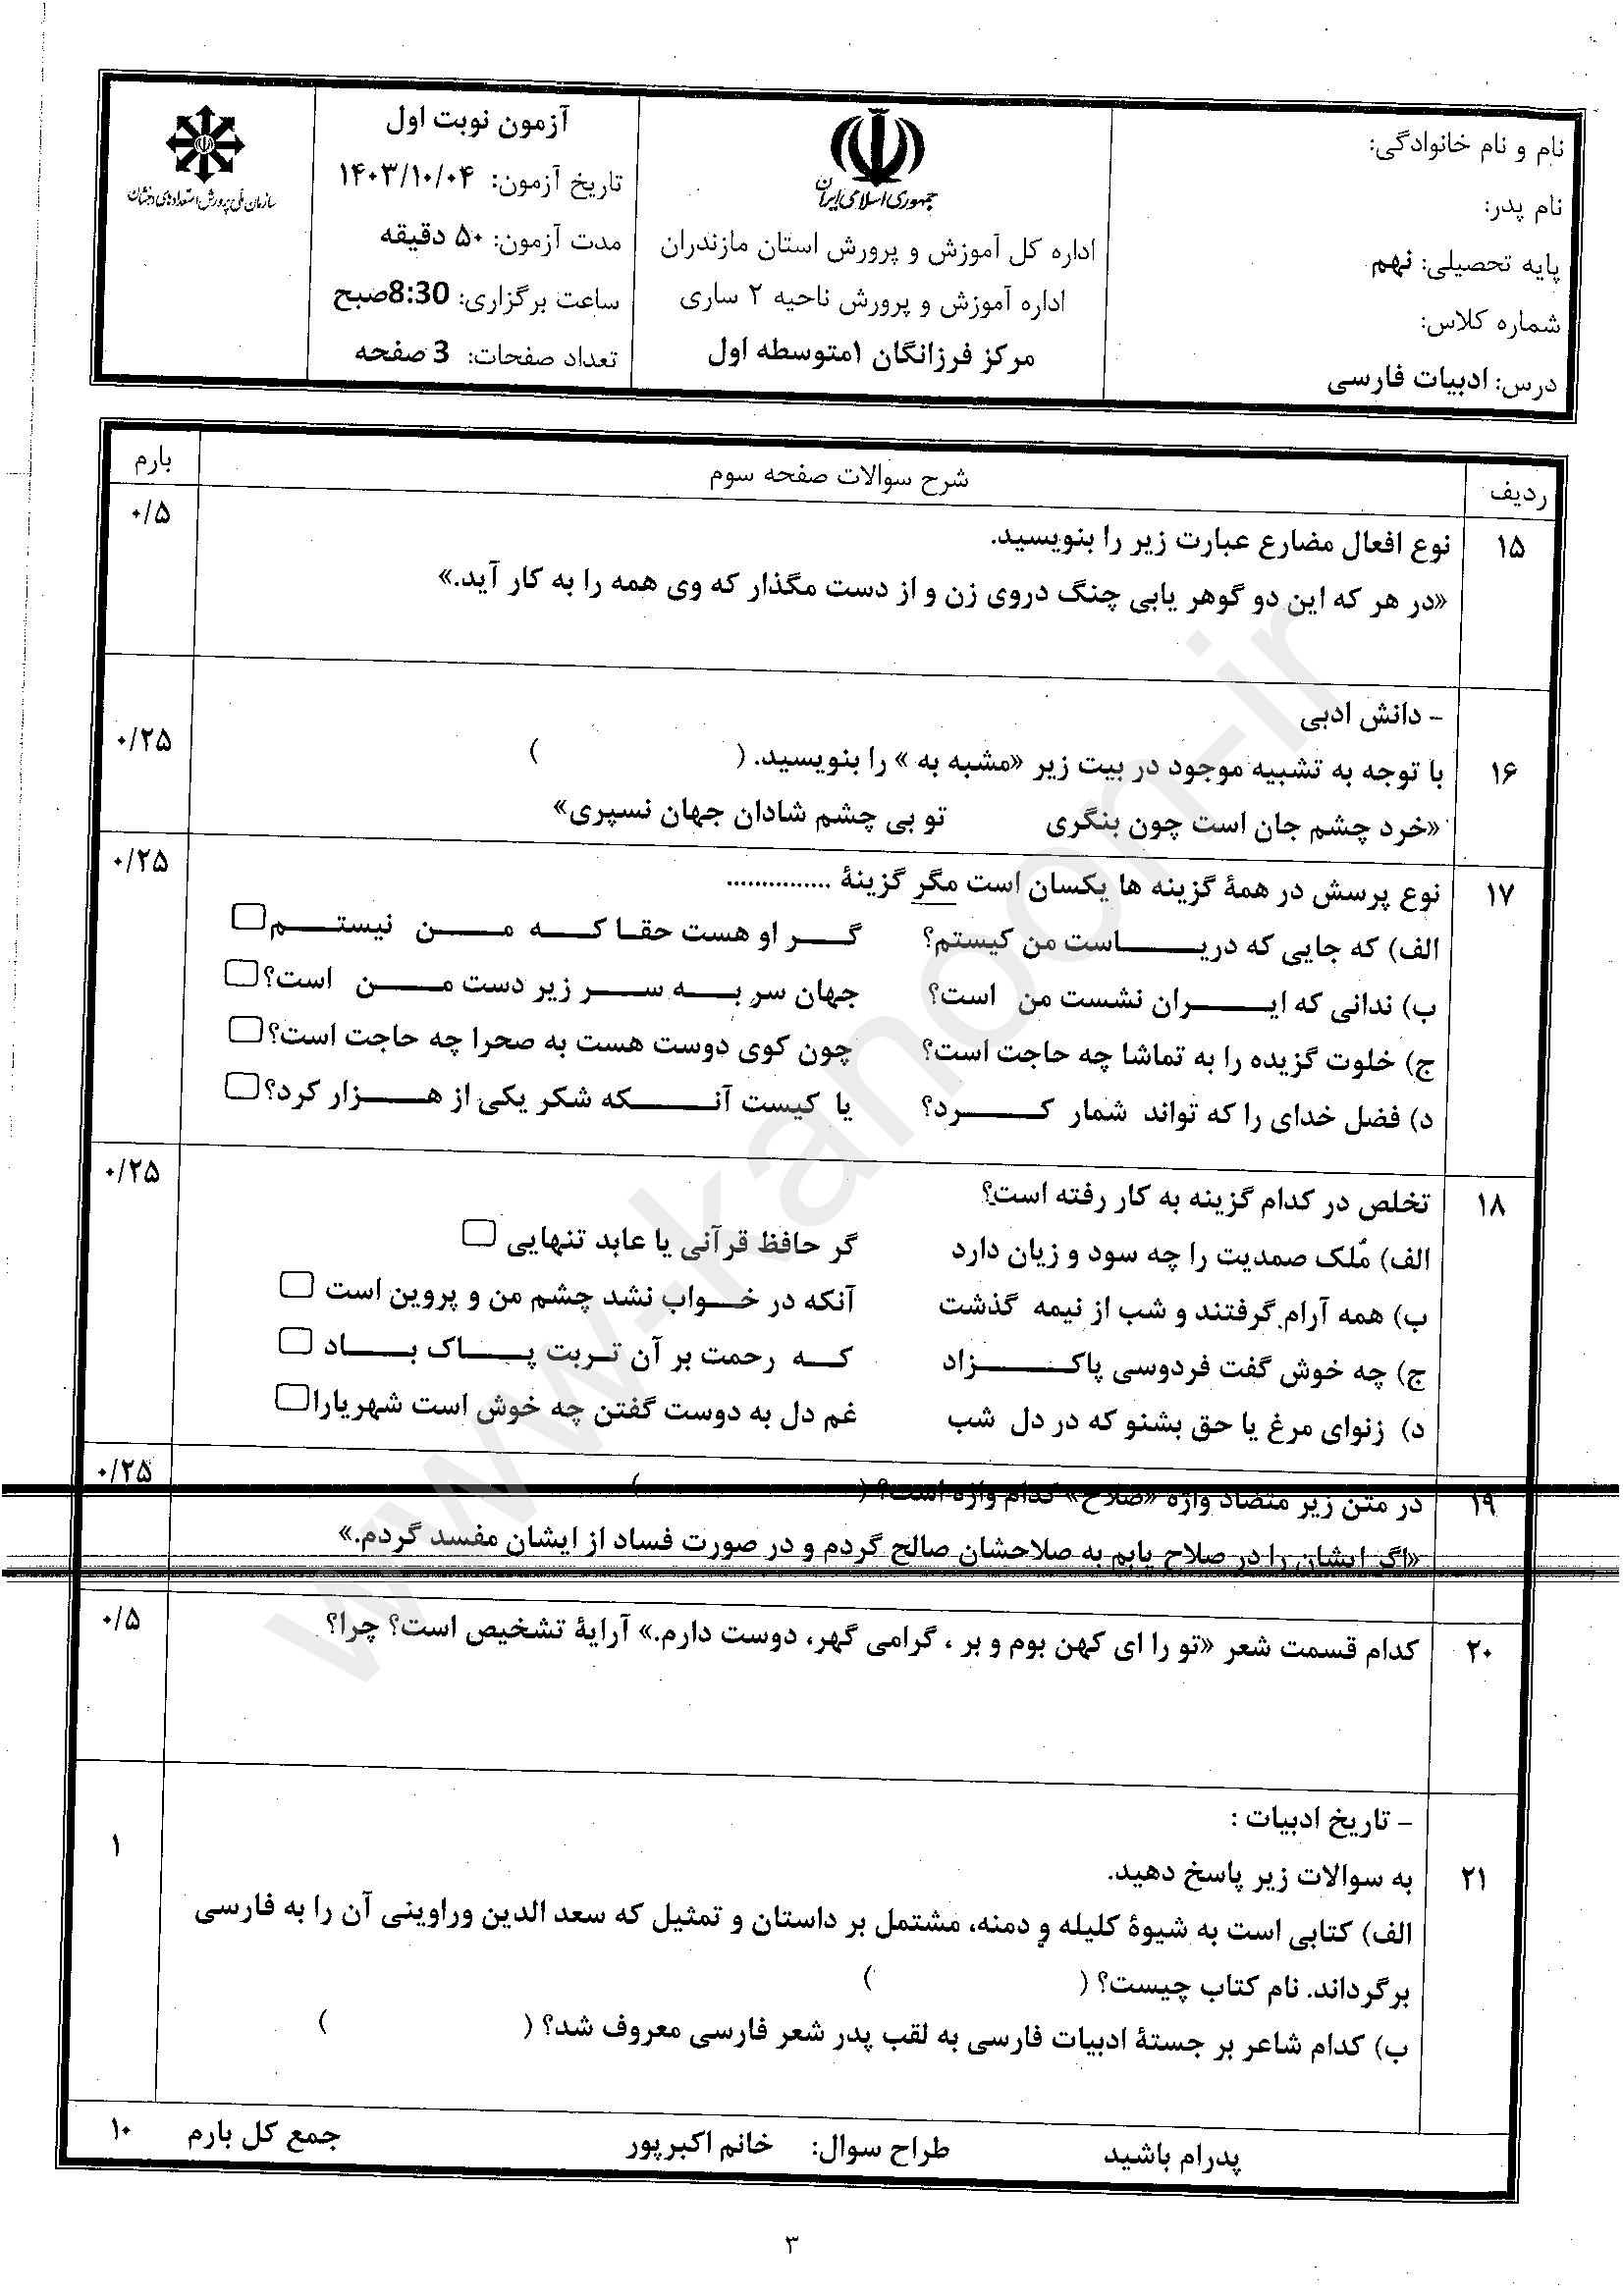 نام و نام خانوادگی:
نام پدر:
پایه تحصیلی: نهم
شماره کلاس:
درس: ادبیات فارسی
جمهوری اسلامی ایران
اداره کل آموزش و پرورش استان مازندران
اداره آموزش و پرورش ناحیه ۲ ساری
مرکز فرزانگان ۱متوسطه اول
آزمون نوبت اول
تاریخ آزمون: ۱۴۰۳/۱۰/۰۴
مدت آزمون: ۵۰ دقیقه
ساعت برگزاری: 8:30صبح
تعداد صفحات: 3 صفحه
سازمان ملی پرورش استعدادهای درخشان
ردیف شرح سوالات صفحه سوم بارم
۱۵ نوع افعال مضارع عبارت زیر را بنویسید. ۰/۵
«در هر که این دو گوهر یابی چنگ دروی زن و از دست مگذار که وی همه را به کار آید.»
- دانش ادبی
۱۶ با توجه به تشبیه موجود در بیت زیر «مشبه به » را بنویسید. ( ) ۰/۲۵
«خرد چشم جان است چون بنگری تو بی چشم شادان جهان نسپری»
۱۷ نوع پرسش در همهٔ گزینه ها یکسان است مگر گزینهٔ ............... ۰/۲۵
الف) که جایی که دریـــــاست من کیستم؟ گـــر او هست حقـا کـــه مـــن نیستـــم
ب) ندانی که ایـــــران نشست من است؟ جهان سر بـــه ســـر زیر دست مـــن است؟
ج) خلوت گزیده را به تماشا چه حاجت است؟ چون کوی دوست هست به صحرا چه حاجت است؟
د) فضل خدای را که تواند شمار کـــــرد؟ یا کیست آنـــــکه شکر یکی از هـــــزار کرد؟
۱۸ تخلص در کدام گزینه به کار رفته است؟ ۰/۲۵
الف) مُلک صمدیت را چه سود و زیان دارد گر حافظ قرآنی یا عابد تنهایی
ب) همه آرام گرفتند و شب از نیمه گذشت آنکه در خـــواب نشد چشم من و پروین است
ج) چه خوش گفت فردوسی پاکـــــزاد کـــه رحمت بر آن تـربت پـــاک بـــاد
د) زنوای مرغ یا حق بشنو که در دل شب غم دل به دوست گفتن چه خوش است شهریارا
۱۹ در متن زیر متضاد واژه «صلاح» کدام واژه است؟ ( ) ۰/۲۵
«اگر ایشان را در صلاح یابم به صلاحشان صالح گردم و در صورت فساد از ایشان مفسد گردم.»
۲۰ کدام قسمت شعر «تو را ای کهن بوم و بر ، گرامی گهر، دوست دارم.» آرایهٔ تشخیص است؟ چرا؟ ۰/۵
- تاریخ ادبیات :
۲۱ به سوالات زیر پاسخ دهید. ۱
الف) کتابی است به شیوهٔ کلیله و دمنه، مشتمل بر داستان و تمثیل که سعد الدین وراوینی آن را به فارسی
برگرداند. نام کتاب چیست؟ ( )
ب) کدام شاعر بر جستهٔ ادبیات فارسی به لقب پدر شعر فارسی معروف شد؟ ( )
پدرام باشید طراح سوال: خانم اکبرپور جمع کل بارم ۱۰
۳
www.kanoon.ir